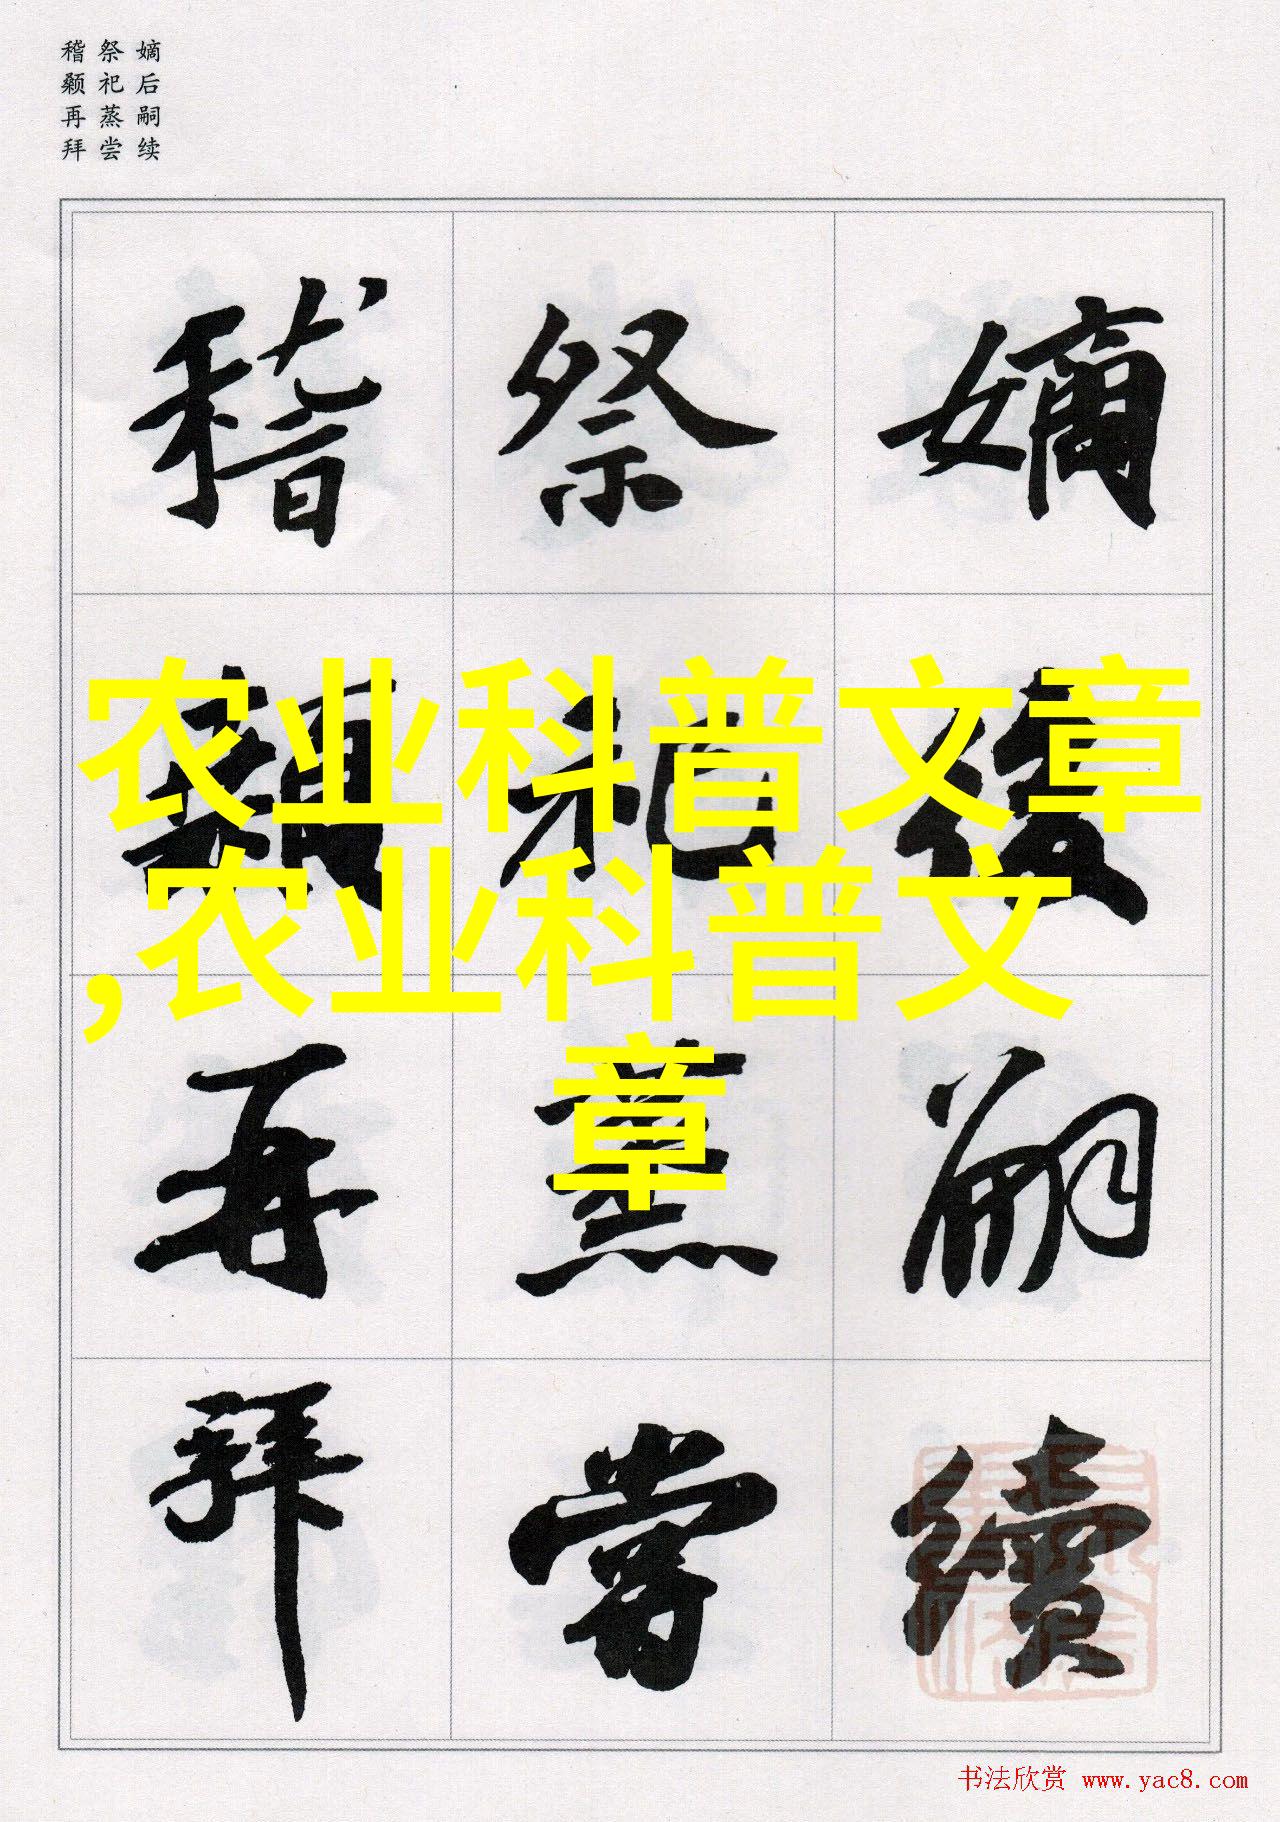 嫡后嗣续
祭祀蒸尝
稽颡再拜
嫡後嗣續
祭祀蒸嘗
稽顙再拜
农业科普文章
,农业科普文
章
书法欣赏 www.yac8.com